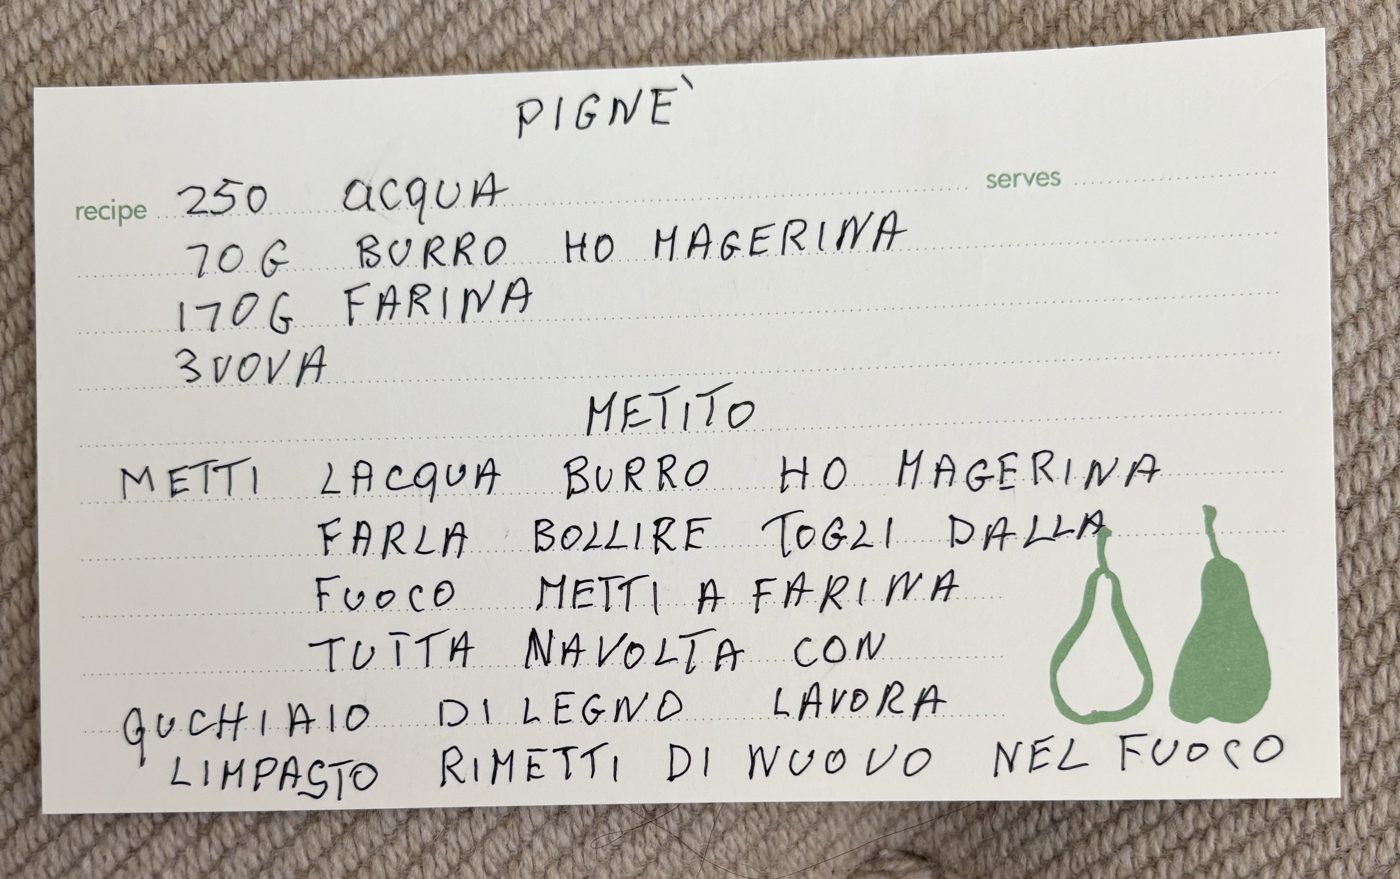 PIGNE`
recipe 250 acqUA serves
70 G BURRO HO MAGERINA
170G FARINA
3 UOVA
METITO
METTI LACQUA BURRO HO MAGERINA
FARLA BOLLIRE TOGLI DALLA
FUOCO METTI A FARINA
TUTTA NAVOLTA CON
QUCHIAIO DI LEGNO LAVORA
LIMPASTO RIMETTI DI NUOVO NEL FUOCO